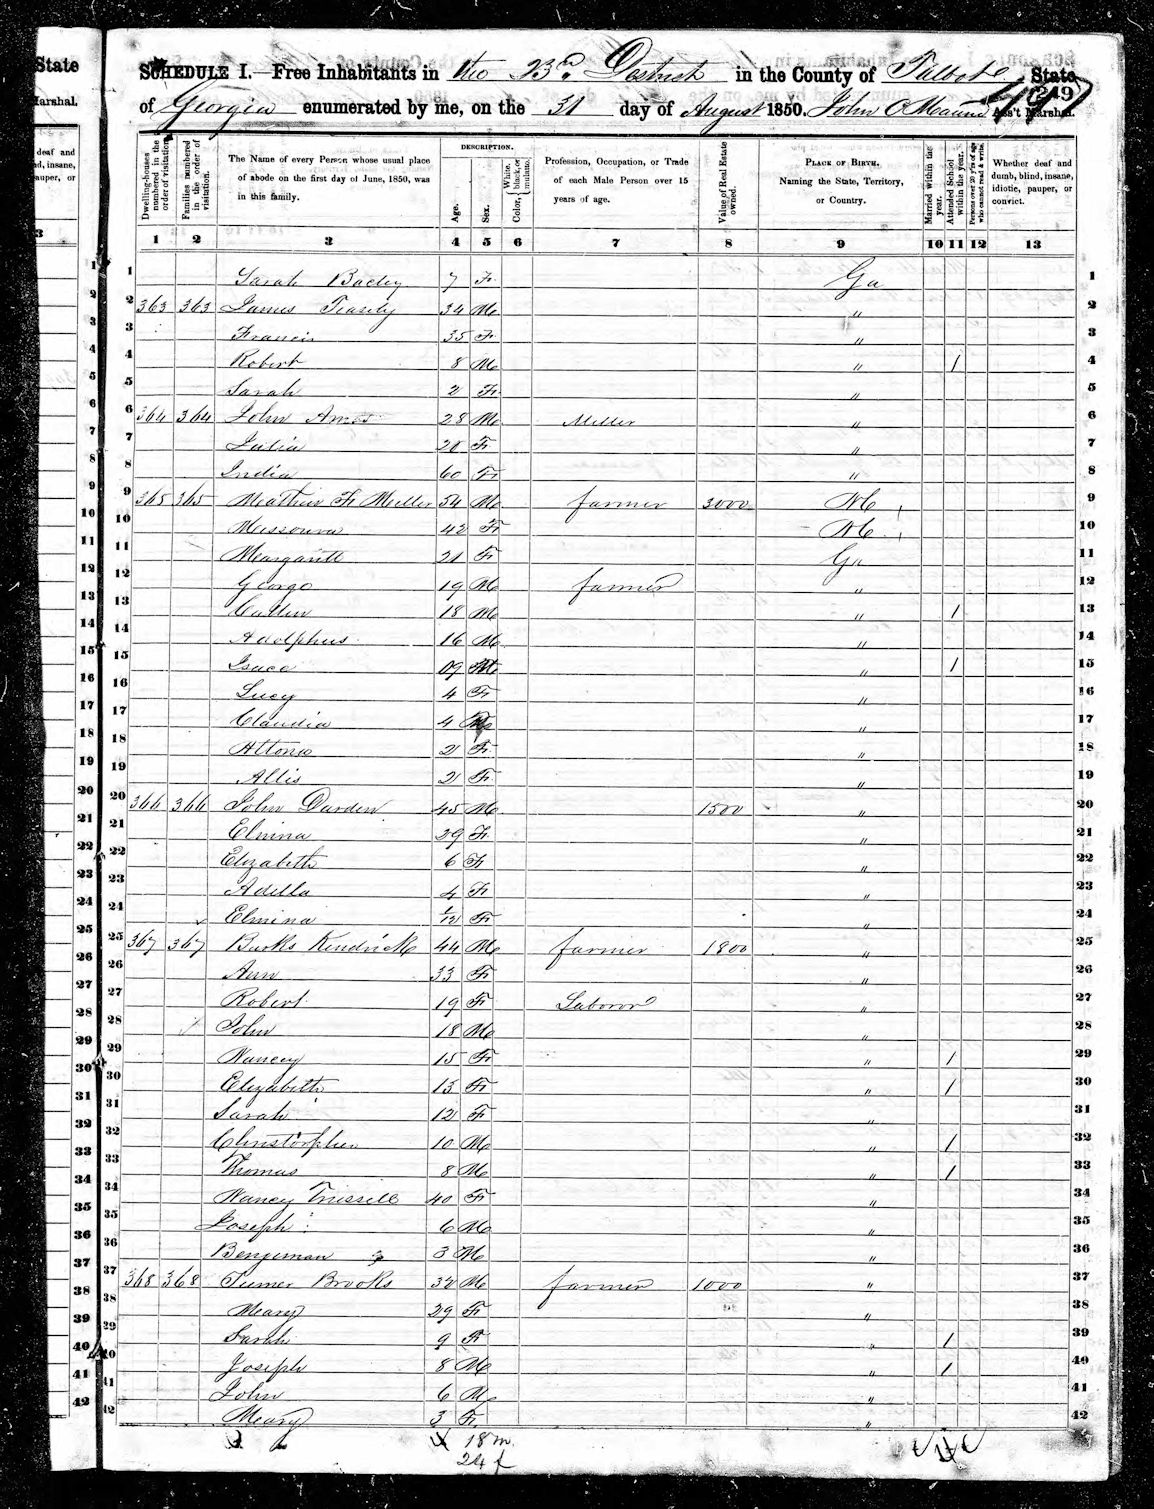 State
Marshal.
SCHEDULE I.—Free Inhabitants in the 23d District in the County of Talbot State
of Georgia enumerated by me, on the 31 day of August 1850. John C Maund Ass't Marshal.
249
Dwelling-houses numbered in the order of visitation.
Families numbered in the order of visitation.
The Name of every Person whose usual place of abode on the first day of June, 1850, was in this family.
DESCRIPTION.
Age.
Sex.
Color, White, black, or mulatto.
Profession, Occupation, or Trade of each Male Person over 15 years of age.
Value of Real Estate owned.
PLACE OF BIRTH.
Naming the State, Territory, or Country.
Married within the year.
Attended School within the year.
Persons over 20 y'rs of age who cannot read & write.
Whether deaf and dumb, blind, insane, idiotic, pauper, or convict.
1 2 3 4 5 6 7 8 9 10 11 12 13
1 Sarah 7 F Ga 1
2 363 363 James Teasly 34 M " 2
3 Francis 35 F " 3
4 Robert 8 M " 1 4
5 Sarah 2 F " 5
6 364 364 John Amos 28 M Miller " 6
7 Julia 20 F " 7
8 India 60 F " 8
9 365 365 F Miller 54 M farmer 3000 NC 9
10 Missoura 42 F NC 10
11 Margarett 21 F Ga 11
12 George 19 M farmer " 12
13 18 M " 1 13
14 Adolphus 16 M " 14
15 Isaac 09 M " 1 15
16 Lucy 4 F " 16
17 Claudia 4 " 17
18 2 F " 18
19 Allis 2 F " 19
20 366 366 John Darden 45 M 1500 " 20
21 Elmina 29 F " 21
22 Elizabeth 6 F " 22
23 Adella 4 F " 23
24 Elmina 1/12 F " 24
25 367 367 Burks Kendrick 44 M farmer 1800 " 25
26 Ann 33 F " 26
27 Robert 19 F Laborer " 27
28 John 18 M " 28
29 Nancy 15 F " 1 29
30 Elizabeth 13 F " 1 30
31 Sarah 12 F " 31
32 Christopher 10 M " 1 32
33 Thomas 8 M " 1 33
34 Nancy Trussell 40 F " 34
35 Joseph 6 M " 35
36 Benjeman 3 M " 36
37 368 368 Turner Brooks 32 M farmer 1000 " 37
38 Meary 29 F " 38
39 Sarah 9 F " 1 39
40 Joseph 8 M " 1 40
41 John 6 M " 41
42 Meary 3 F " 42
18 m.
24 f